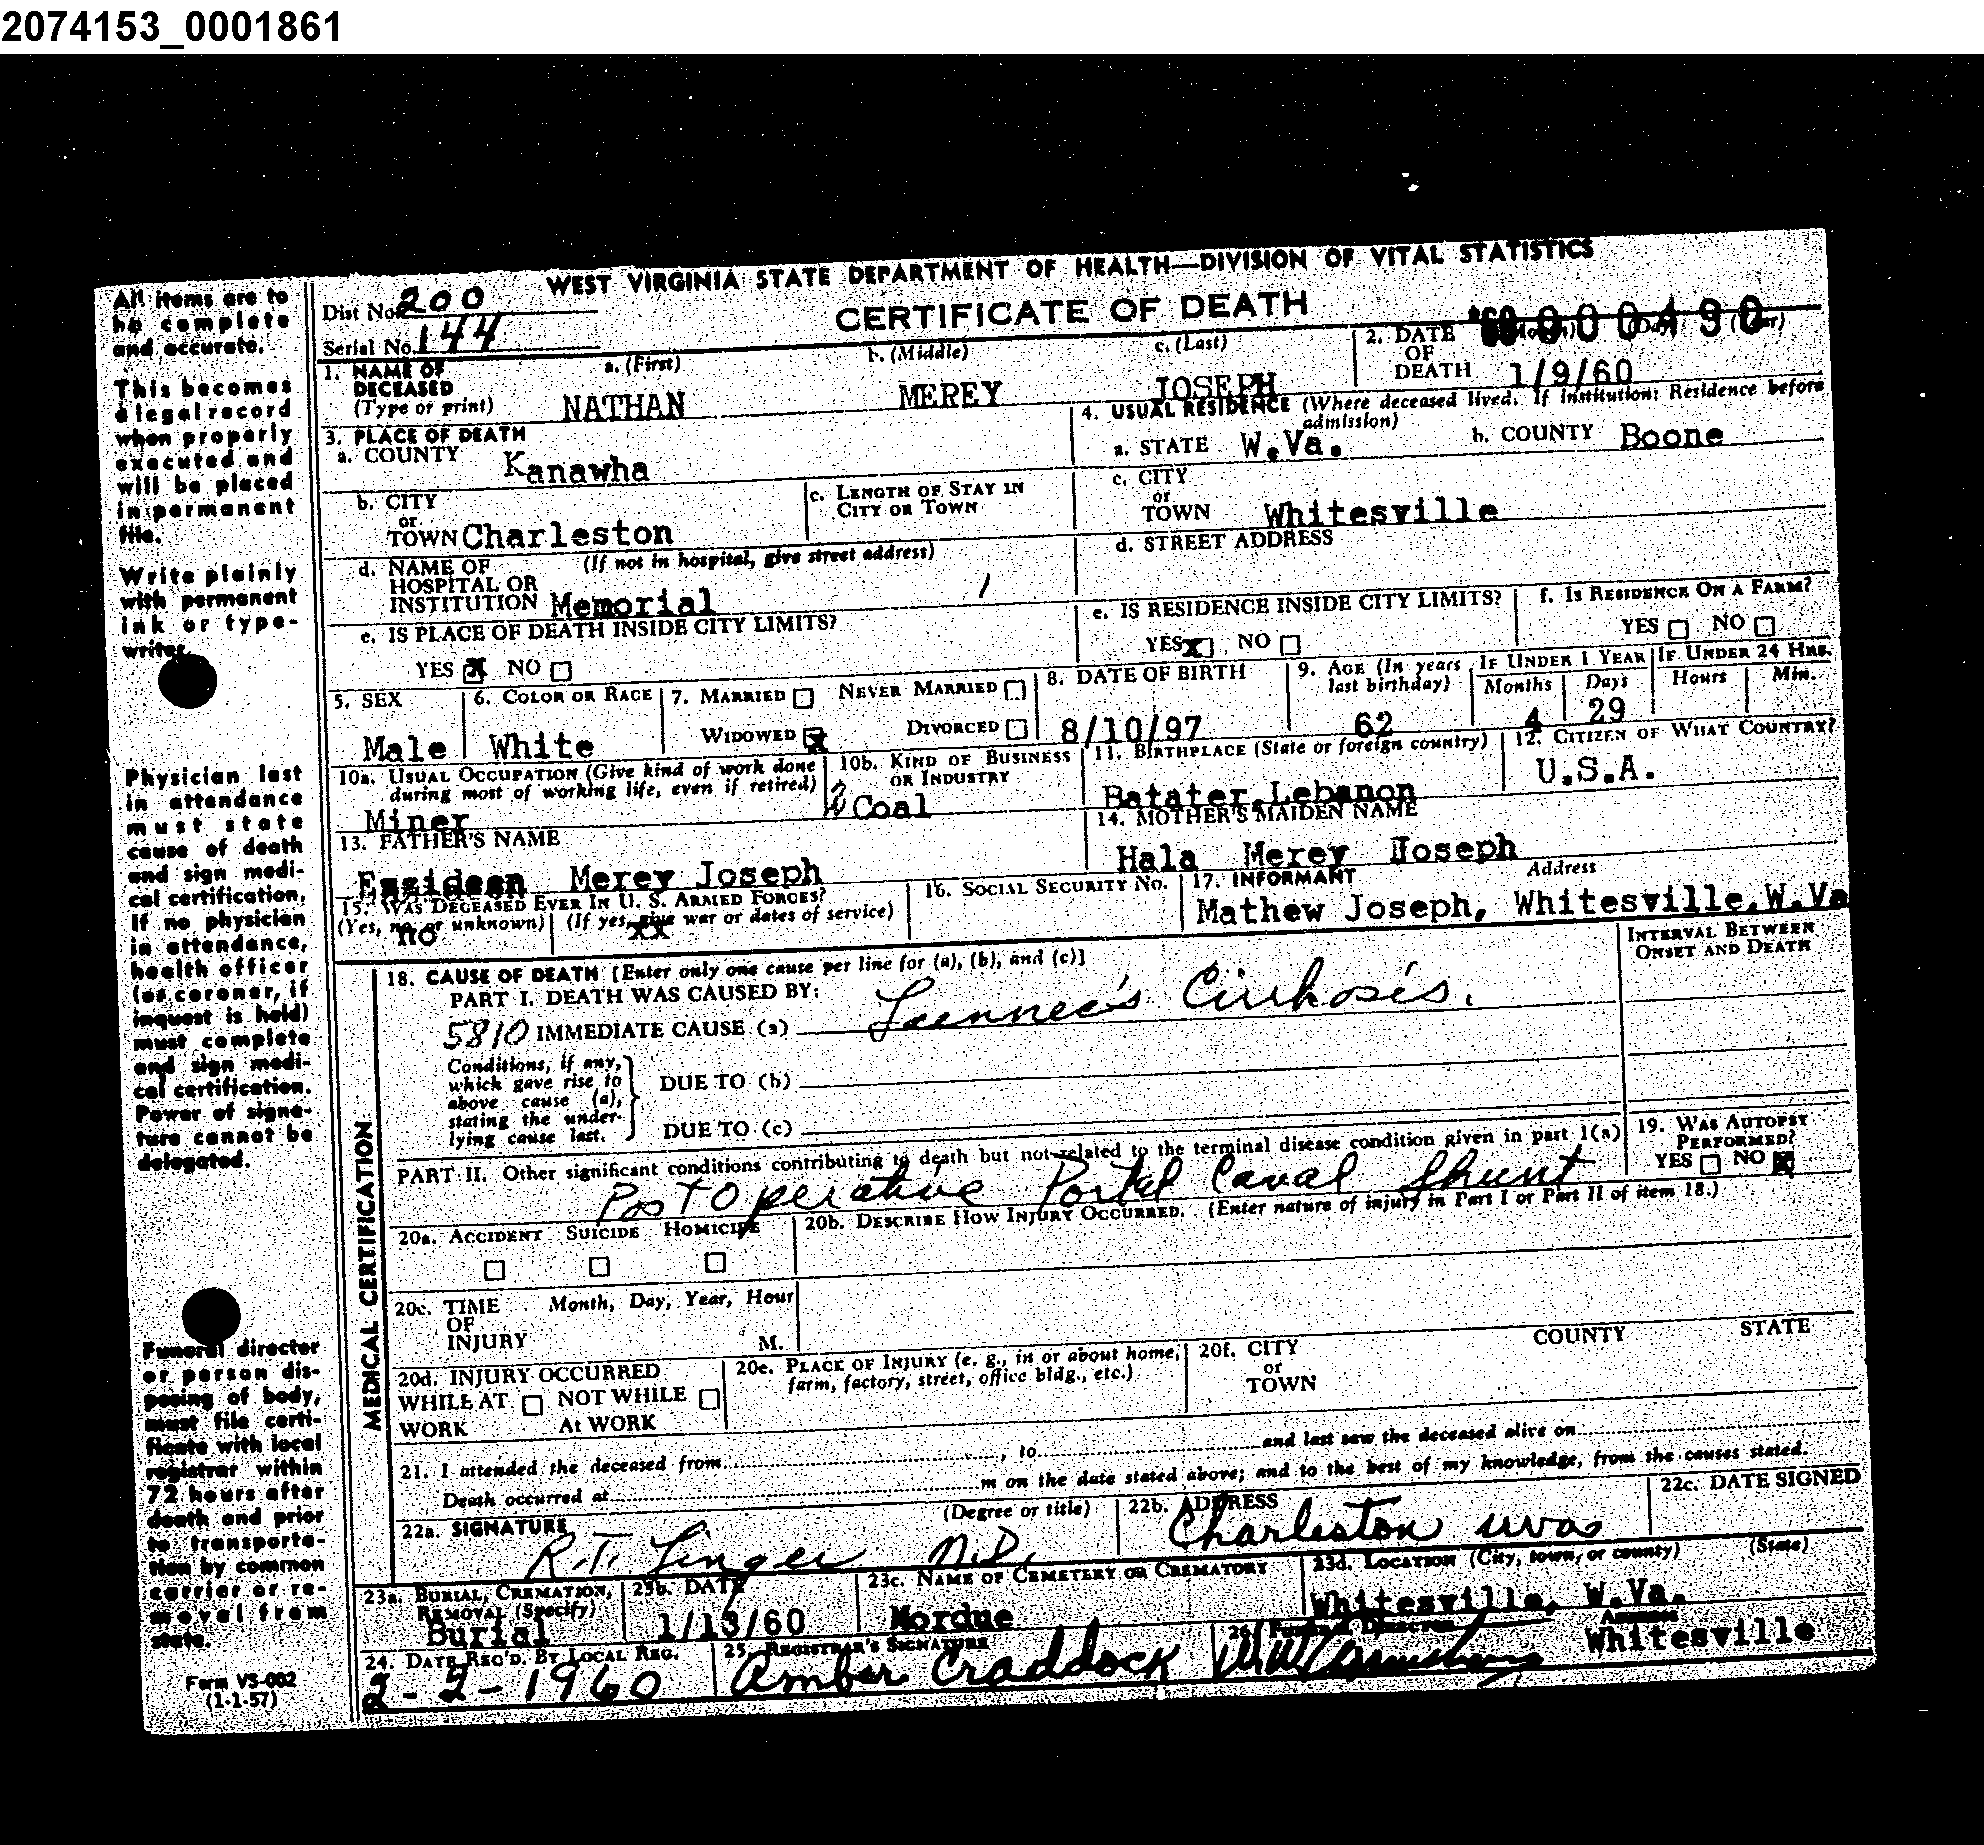 2074153_0001861
WEST VIRGINIA STATE DEPARTMENT OF HEALTH—DIVISION OF VITAL STATISTICS
CERTIFICATE OF DEATH
Dist No. 200
Serial No. 144
1. NAME OF DECEASED (Type or print) a. (First) b. (Middle) c. (Last)
NATHAN MEREY JOSEPH
2. DATE OF DEATH (Year)
1/9/60
3. PLACE OF DEATH
a. COUNTY Kanawha
b. CITY or TOWN Charleston
c. LENGTH OF STAY IN CITY OR TOWN
d. NAME OF HOSPITAL OR INSTITUTION (If not in hospital, give street address)
Memorial
e. IS PLACE OF DEATH INSIDE CITY LIMITS?
YES X NO
4. USUAL RESIDENCE (Where deceased lived. If institution: Residence before admission)
a. STATE W.Va. b. COUNTY Boone
c. CITY or TOWN Whitesville
d. STREET ADDRESS
e. IS RESIDENCE INSIDE CITY LIMITS?
YES X NO
f. IS RESIDENCE ON A FARM?
YES NO
5. SEX Male
6. COLOR OR RACE White
7. MARRIED NEVER MARRIED
WIDOWED X DIVORCED
8. DATE OF BIRTH 8/10/97
9. AGE (In years last birthday) 62
IF UNDER 1 YEAR Months 4 Days 29
IF UNDER 24 HRS. Hours Min.
10a. USUAL OCCUPATION (Give kind of work done during most of working life, even if retired)
Miner
10b. KIND OF BUSINESS OR INDUSTRY
Coal
11. BIRTHPLACE (State or foreign country)
Batater, Lebanon
12. CITIZEN OF WHAT COUNTRY?
U.S.A.
13. FATHER'S NAME
Merey Joseph
14. MOTHER'S MAIDEN NAME
Hala Merey Joseph
15. WAS DECEASED EVER IN U. S. ARMED FORCES?
(Yes, no, or unknown) (If yes, give war or dates of service)
no xx
16. SOCIAL SECURITY NO.
17. INFORMANT Address
Mathew Joseph, Whitesville, W.Va
MEDICAL CERTIFICATION
18. CAUSE OF DEATH [Enter only one cause per line for (a), (b), and (c)]
PART I. DEATH WAS CAUSED BY:
5810 IMMEDIATE CAUSE (a) Laennec's Cirrhosis.
INTERVAL BETWEEN ONSET AND DEATH
Conditions, if any, which gave rise to above cause (a), stating the underlying cause last.
DUE TO (b)
DUE TO (c)
PART II. Other significant conditions contributing to death but not related to the terminal disease condition given in part 1(a)
Post Operative Portal Caval Shunt
19. WAS AUTOPSY PERFORMED?
YES NO X
20a. ACCIDENT SUICIDE HOMICIDE
20b. DESCRIBE HOW INJURY OCCURRED. (Enter nature of injury in Part I or Part II of item 18.)
20c. TIME OF INJURY Month, Day, Year, Hour
M.
20d. INJURY OCCURRED
WHILE AT WORK NOT WHILE At WORK
20e. PLACE OF INJURY (e. g., in or about home, farm, factory, street, office bldg., etc.)
20f. CITY or TOWN COUNTY STATE
21. I attended the deceased from , to and last saw the deceased alive on
Death occurred at m on the date stated above; and to the best of my knowledge, from the causes stated.
22a. SIGNATURE (Degree or title)
R.T. Linger M.D.
22b. ADDRESS
Charleston
22c. DATE SIGNED
23a. BURIAL, CREMATION, REMOVAL (Specify)
Burial
23b. DATE
1/13/60
23c. NAME OF CEMETERY OR CREMATORY
Mordue
23d. LOCATION (City, town, or county) (State)
Whitesville, W.Va.
24. DATE REC'D. BY LOCAL REG.
2-2-1960
25. REGISTRAR'S SIGNATURE
Amber Craddock
26. FUNERAL DIRECTOR ADDRESS
Whitesville
All items are to
be complete
and accurate.
This becomes
a legal record
when properly
executed and
will be placed
in permanent
file.
Write plainly
with permanent
ink or type-
writer.
Physician last
in attendance
must state
cause of death
and sign medi-
cal certification,
If no physician
in attendance,
health officer
(or coroner, if
inquest is held)
must complete
and sign medi-
cal certification.
Power of signa-
ture cannot be
delegated.
Funeral director
or person dis-
posing of body,
must file certi-
ficate with local
registrar within
72 hours after
death and prior
to transporta-
tion by common
carrier or re-
moval from
state.
Form VS-002
(1-1-57)